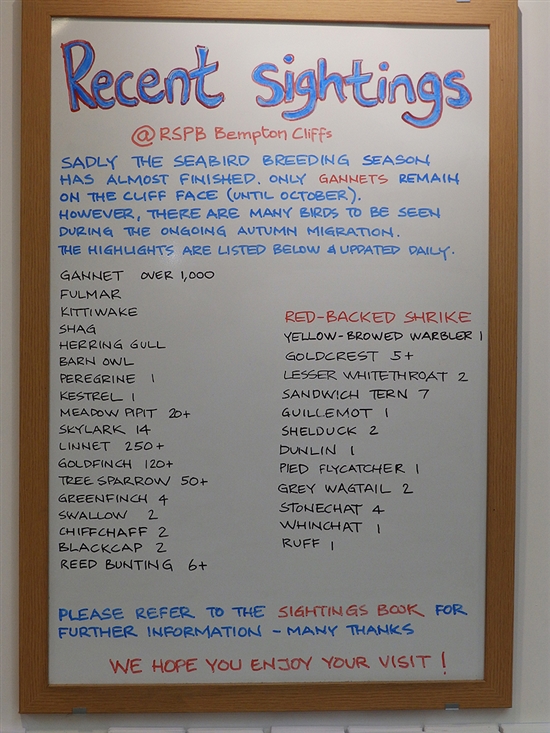 Recent sightings
@ RSPB Bempton Cliffs
SADLY THE SEABIRD BREEDING SEASON
HAS ALMOST FINISHED. ONLY GANNETS REMAIN
ON THE CLIFF FACE (UNTIL OCTOBER).
HOWEVER, THERE ARE MANY BIRDS TO BE SEEN
DURING THE ONGOING AUTUMN MIGRATION.
THE HIGHLIGHTS ARE LISTED BELOW & UPDATED DAILY.
GANNET OVER 1,000
FULMAR
KITTIWAKE
SHAG
HERRING GULL
BARN OWL
PEREGRINE 1
KESTREL 1
MEADOW PIPIT 20+
SKYLARK 14
LINNET 250+
GOLDFINCH 120+
TREE SPARROW 50+
GREENFINCH 4
SWALLOW 2
CHIFFCHAFF 2
BLACKCAP 2
REED BUNTING 6+
RED-BACKED SHRIKE
YELLOW-BROWED WARBLER 1
GOLDCREST 5+
LESSER WHITETHROAT 2
SANDWICH TERN 7
GUILLEMOT 1
SHELDUCK 2
DUNLIN 1
PIED FLYCATCHER 1
GREY WAGTAIL 2
STONECHAT 4
WHINCHAT 1
RUFF 1
PLEASE REFER TO THE SIGHTINGS BOOK FOR
FURTHER INFORMATION - MANY THANKS
WE HOPE YOU ENJOY YOUR VISIT !